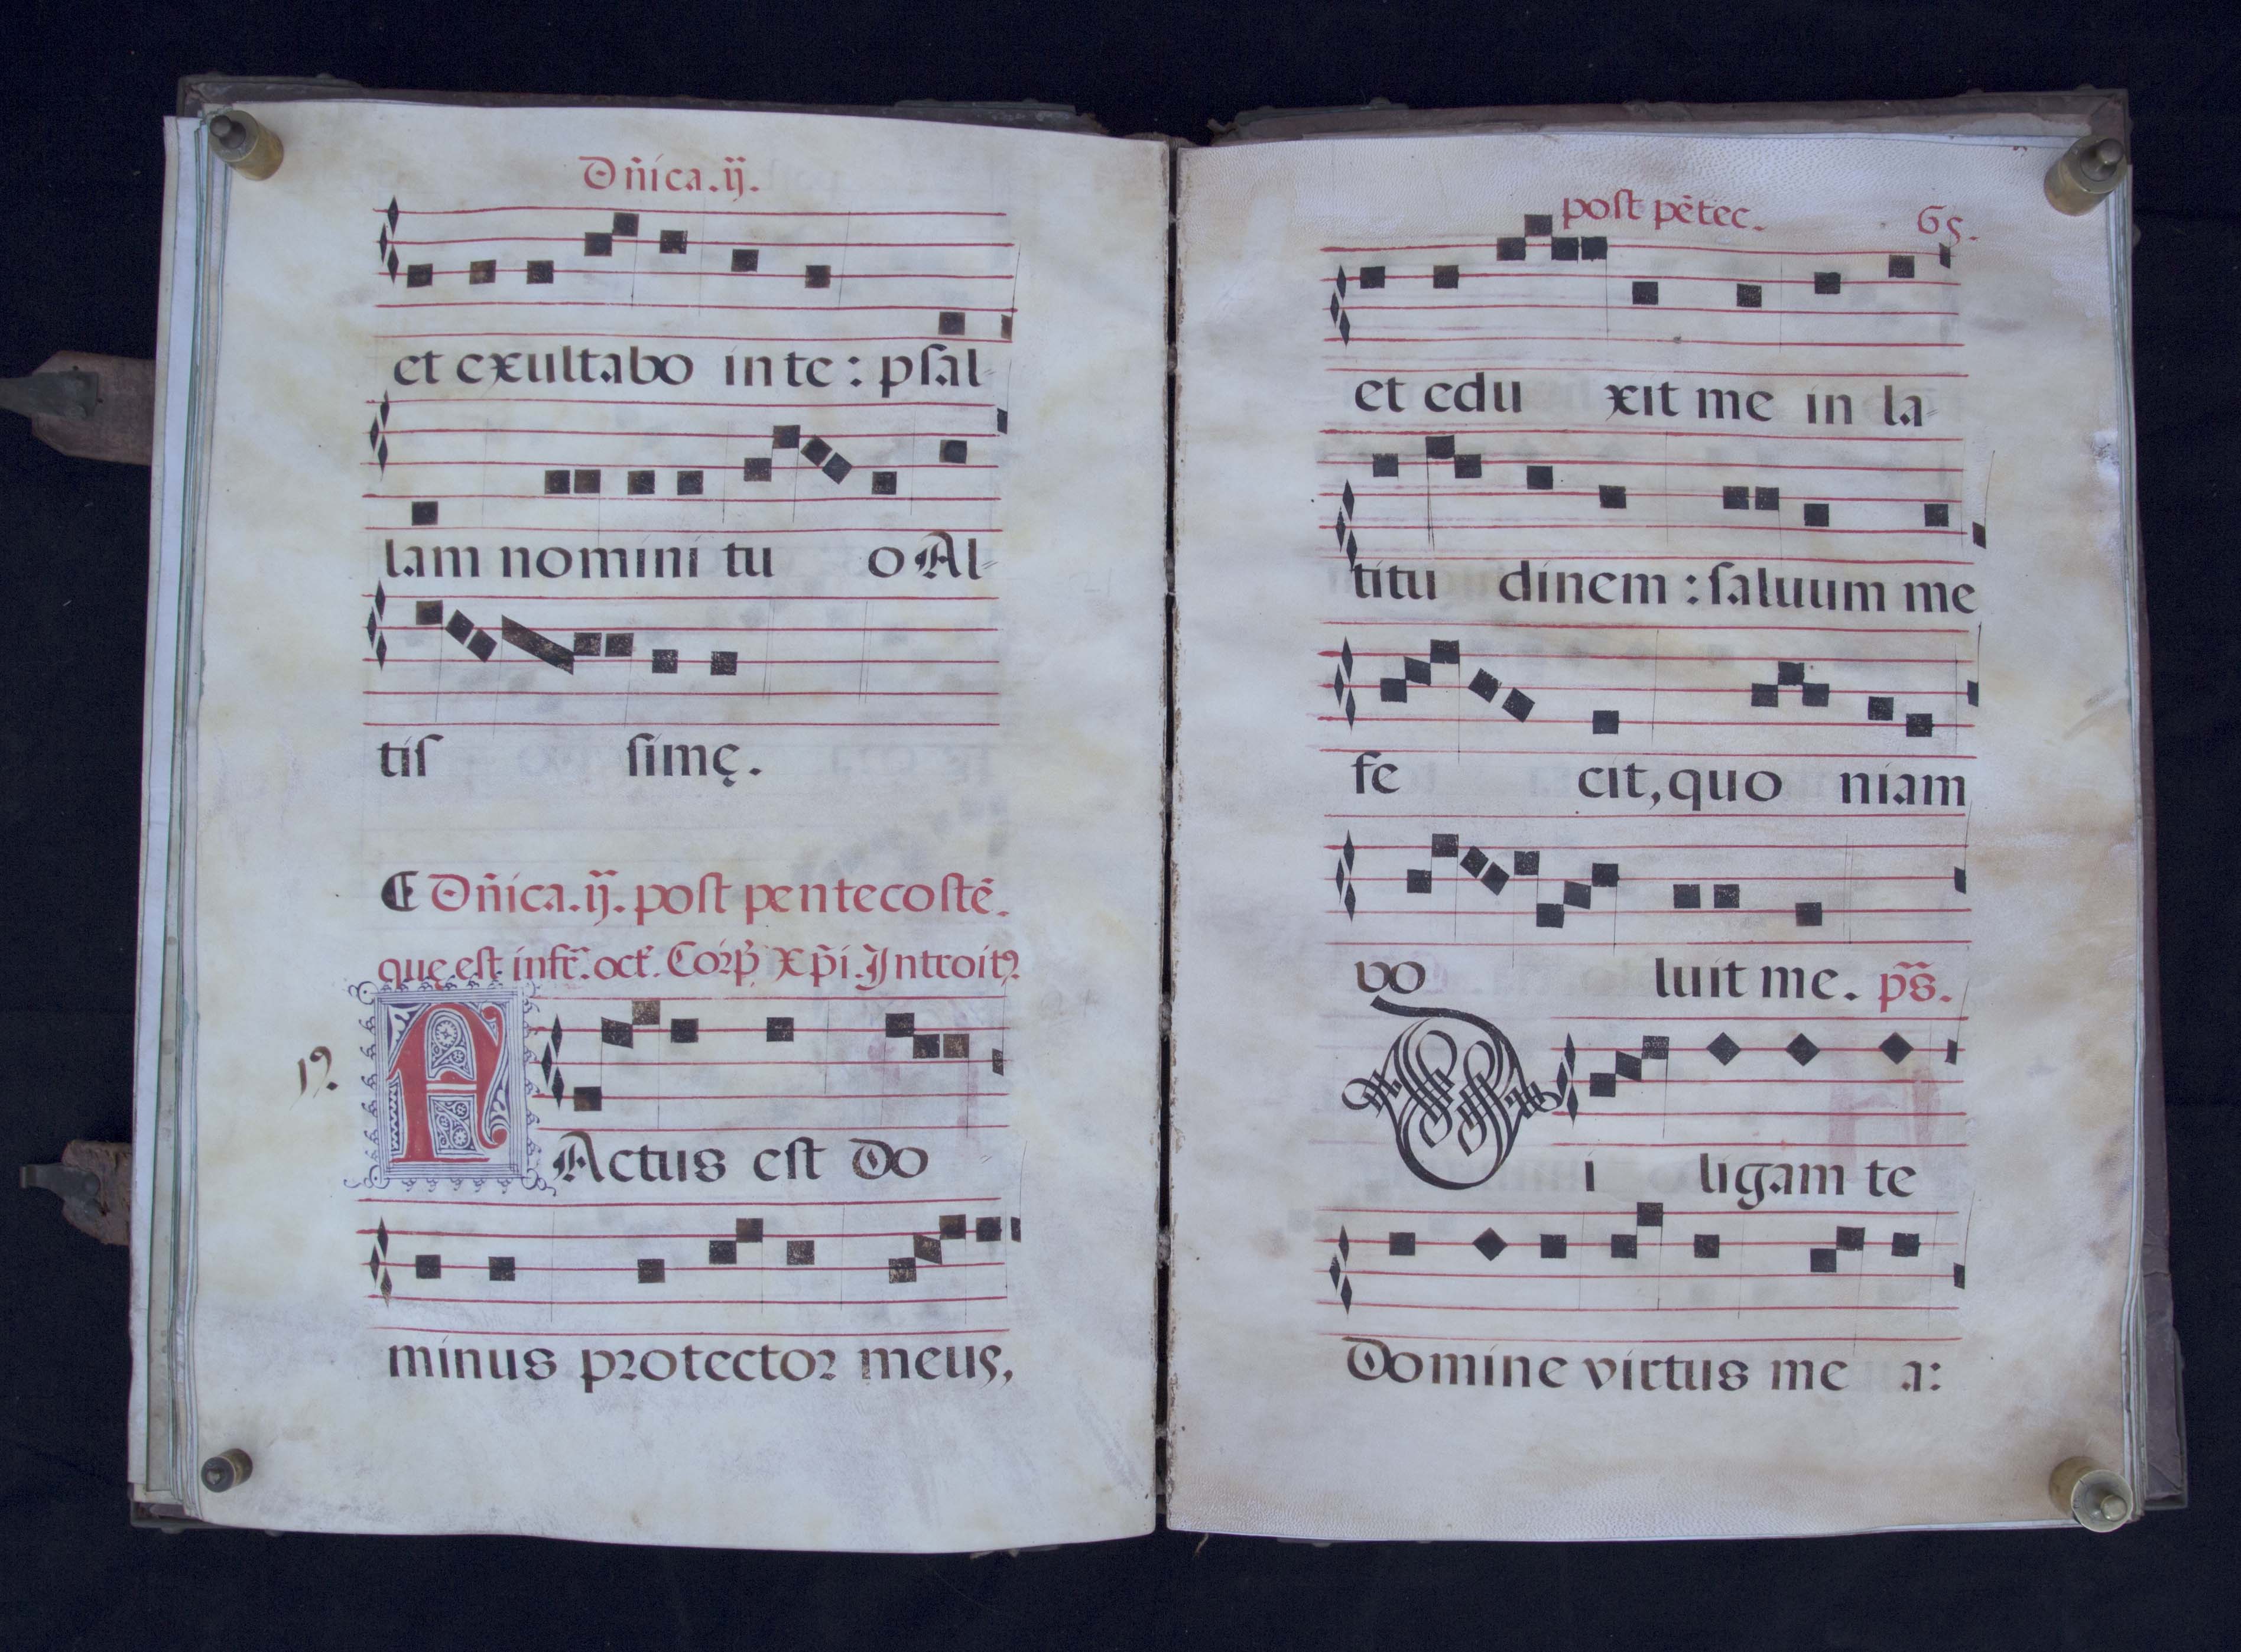 Dñica.ij.
et exultabo in te: psal-
lam nomini tu o Al-
tis simę.
Dñica.ij. post pentecostē.
quę est infr̄. oct̄. Corp̱ Xp̄i. Introitꝰ
19.
A Actus est Do
minus protector meus,
post pētec. 65.
et edu xit me in la-
titu dinem: saluum me
fe cit, quo niam
vo luit me. ps̄.
D i ligam te
Domine virtus me a: